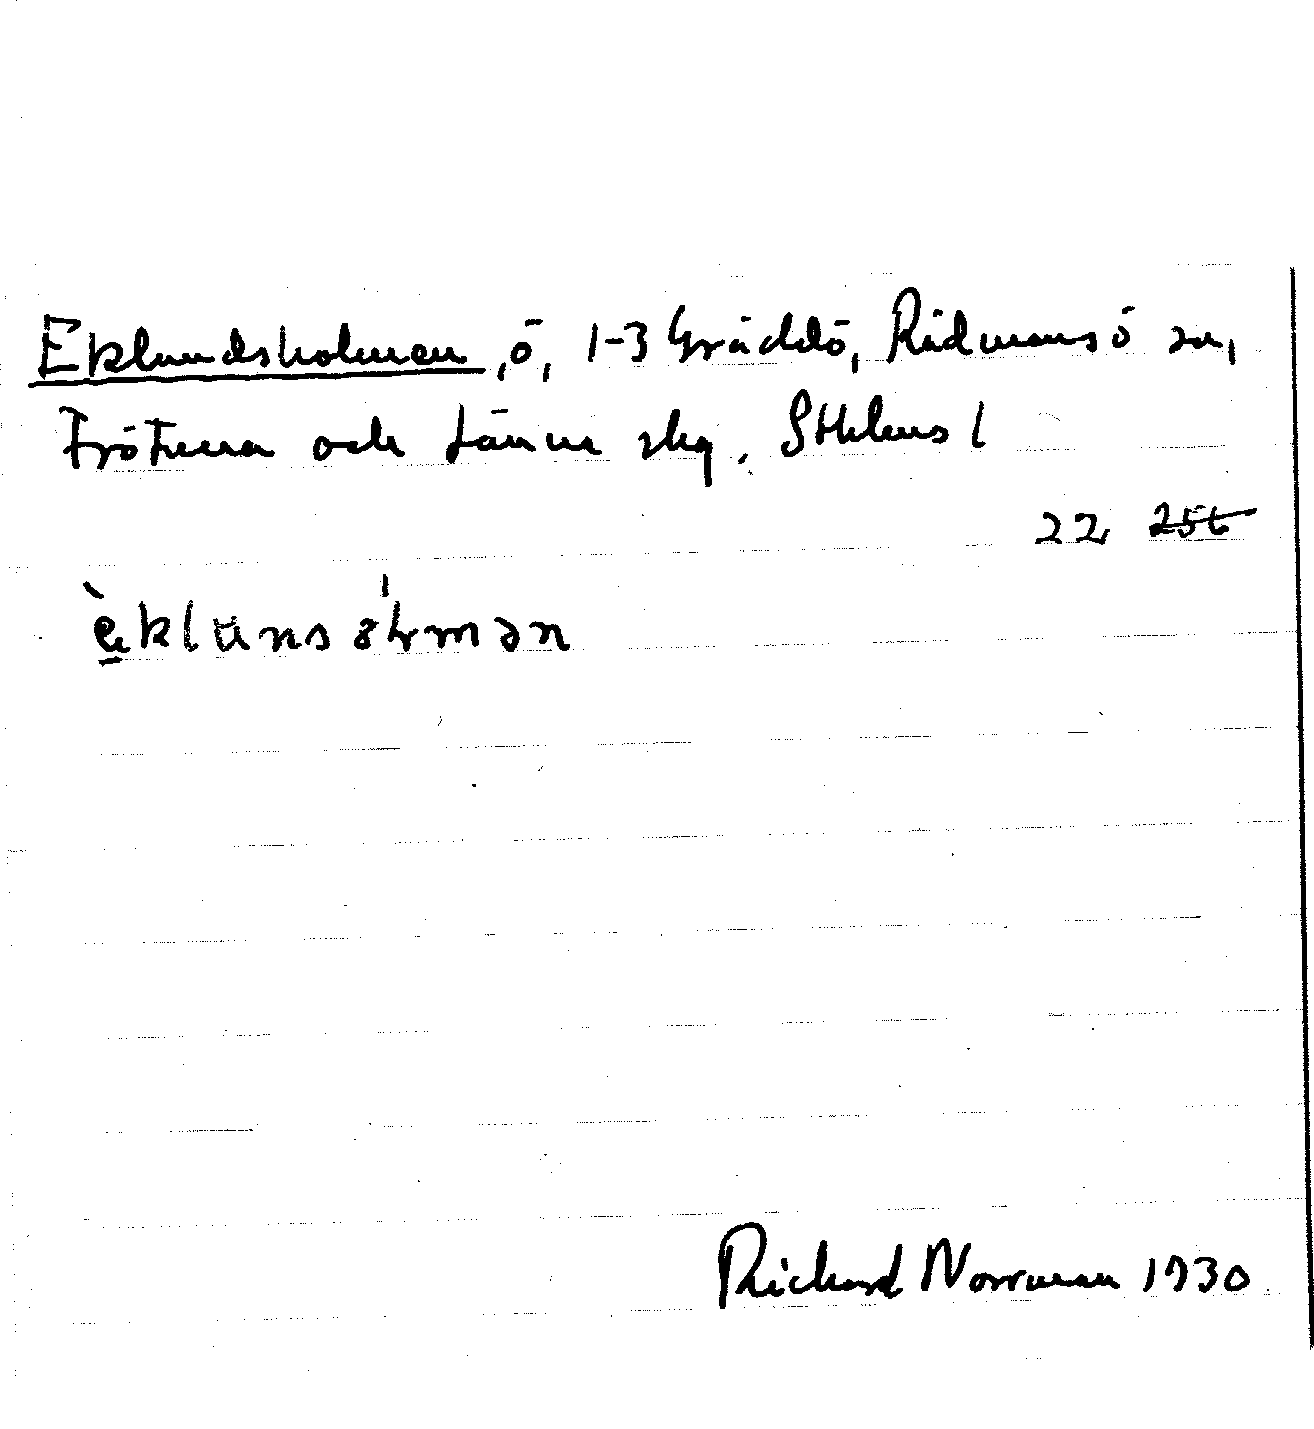 Eklundsholmen, ö, 1-3 Gräddö, Rådmansö sn,
Frötuna och Länna skg. Sthlms l
22 256
èklunsålmən
Richard Norrman 1930